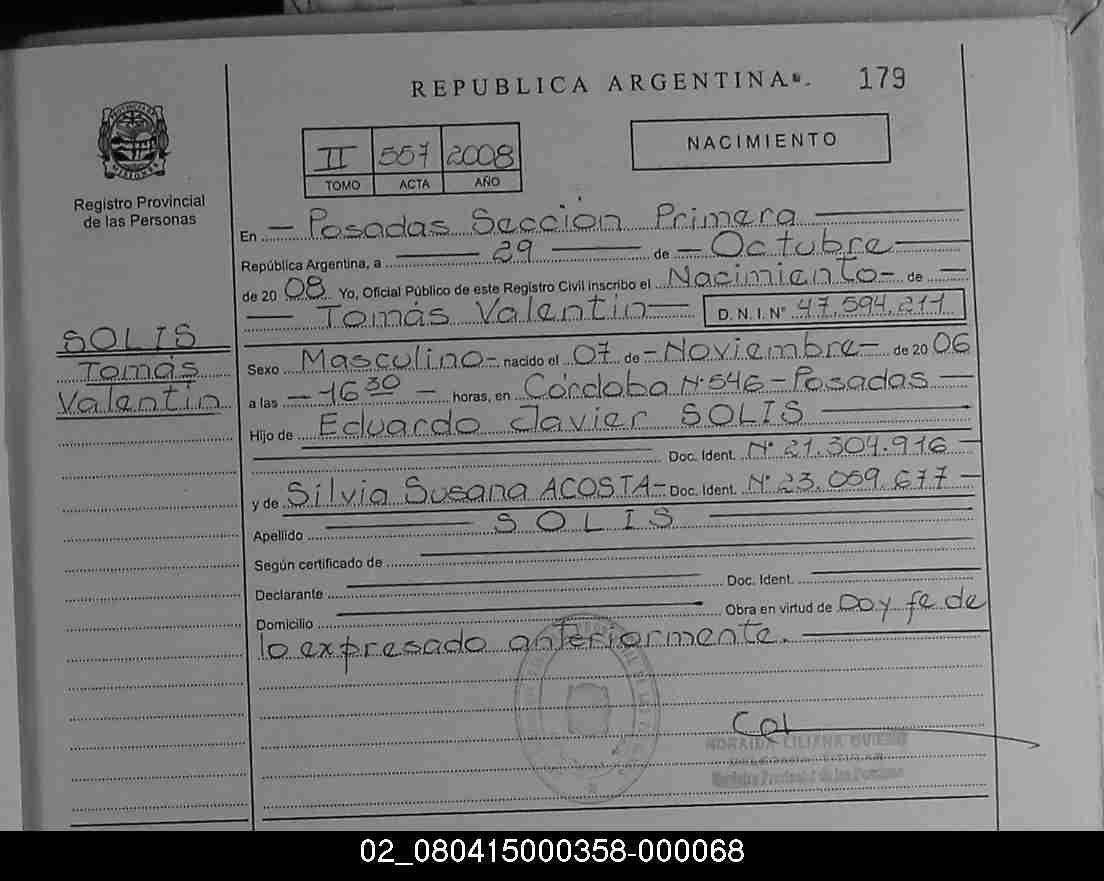 REPUBLICA ARGENTINA.
179
PROVINCIA DE
MISIONES
Registro Provincial
de las Personas
II 557 2008
TOMO ACTA AÑO
NACIMIENTO
En Posadas Sección Primera
República Argentina, a 29 de Octubre
de 2008 Yo, Oficial Público de este Registro Civil inscribo el Nacimiento de
Tomás Valentín D.N.I.Nº 47.594.211
SOLIS
Tomás
Valentín
Sexo Masculino nacido el 07 de Noviembre de 2006
a las 16 30 horas, en Córdoba Nº 546 - Posadas
Hijo de Eduardo Javier SOLIS
Doc. Ident. Nº 21.304.916
y de Silvia Susana ACOSTA Doc. Ident. Nº 23.059.677
Apellido SOLIS
Según certificado de
Declarante Doc. Ident.
Domicilio Obra en virtud de Doy fe de
lo expresado anteriormente.
LILIANA
Registro Provincial de las Personas
02_080415000358-000068